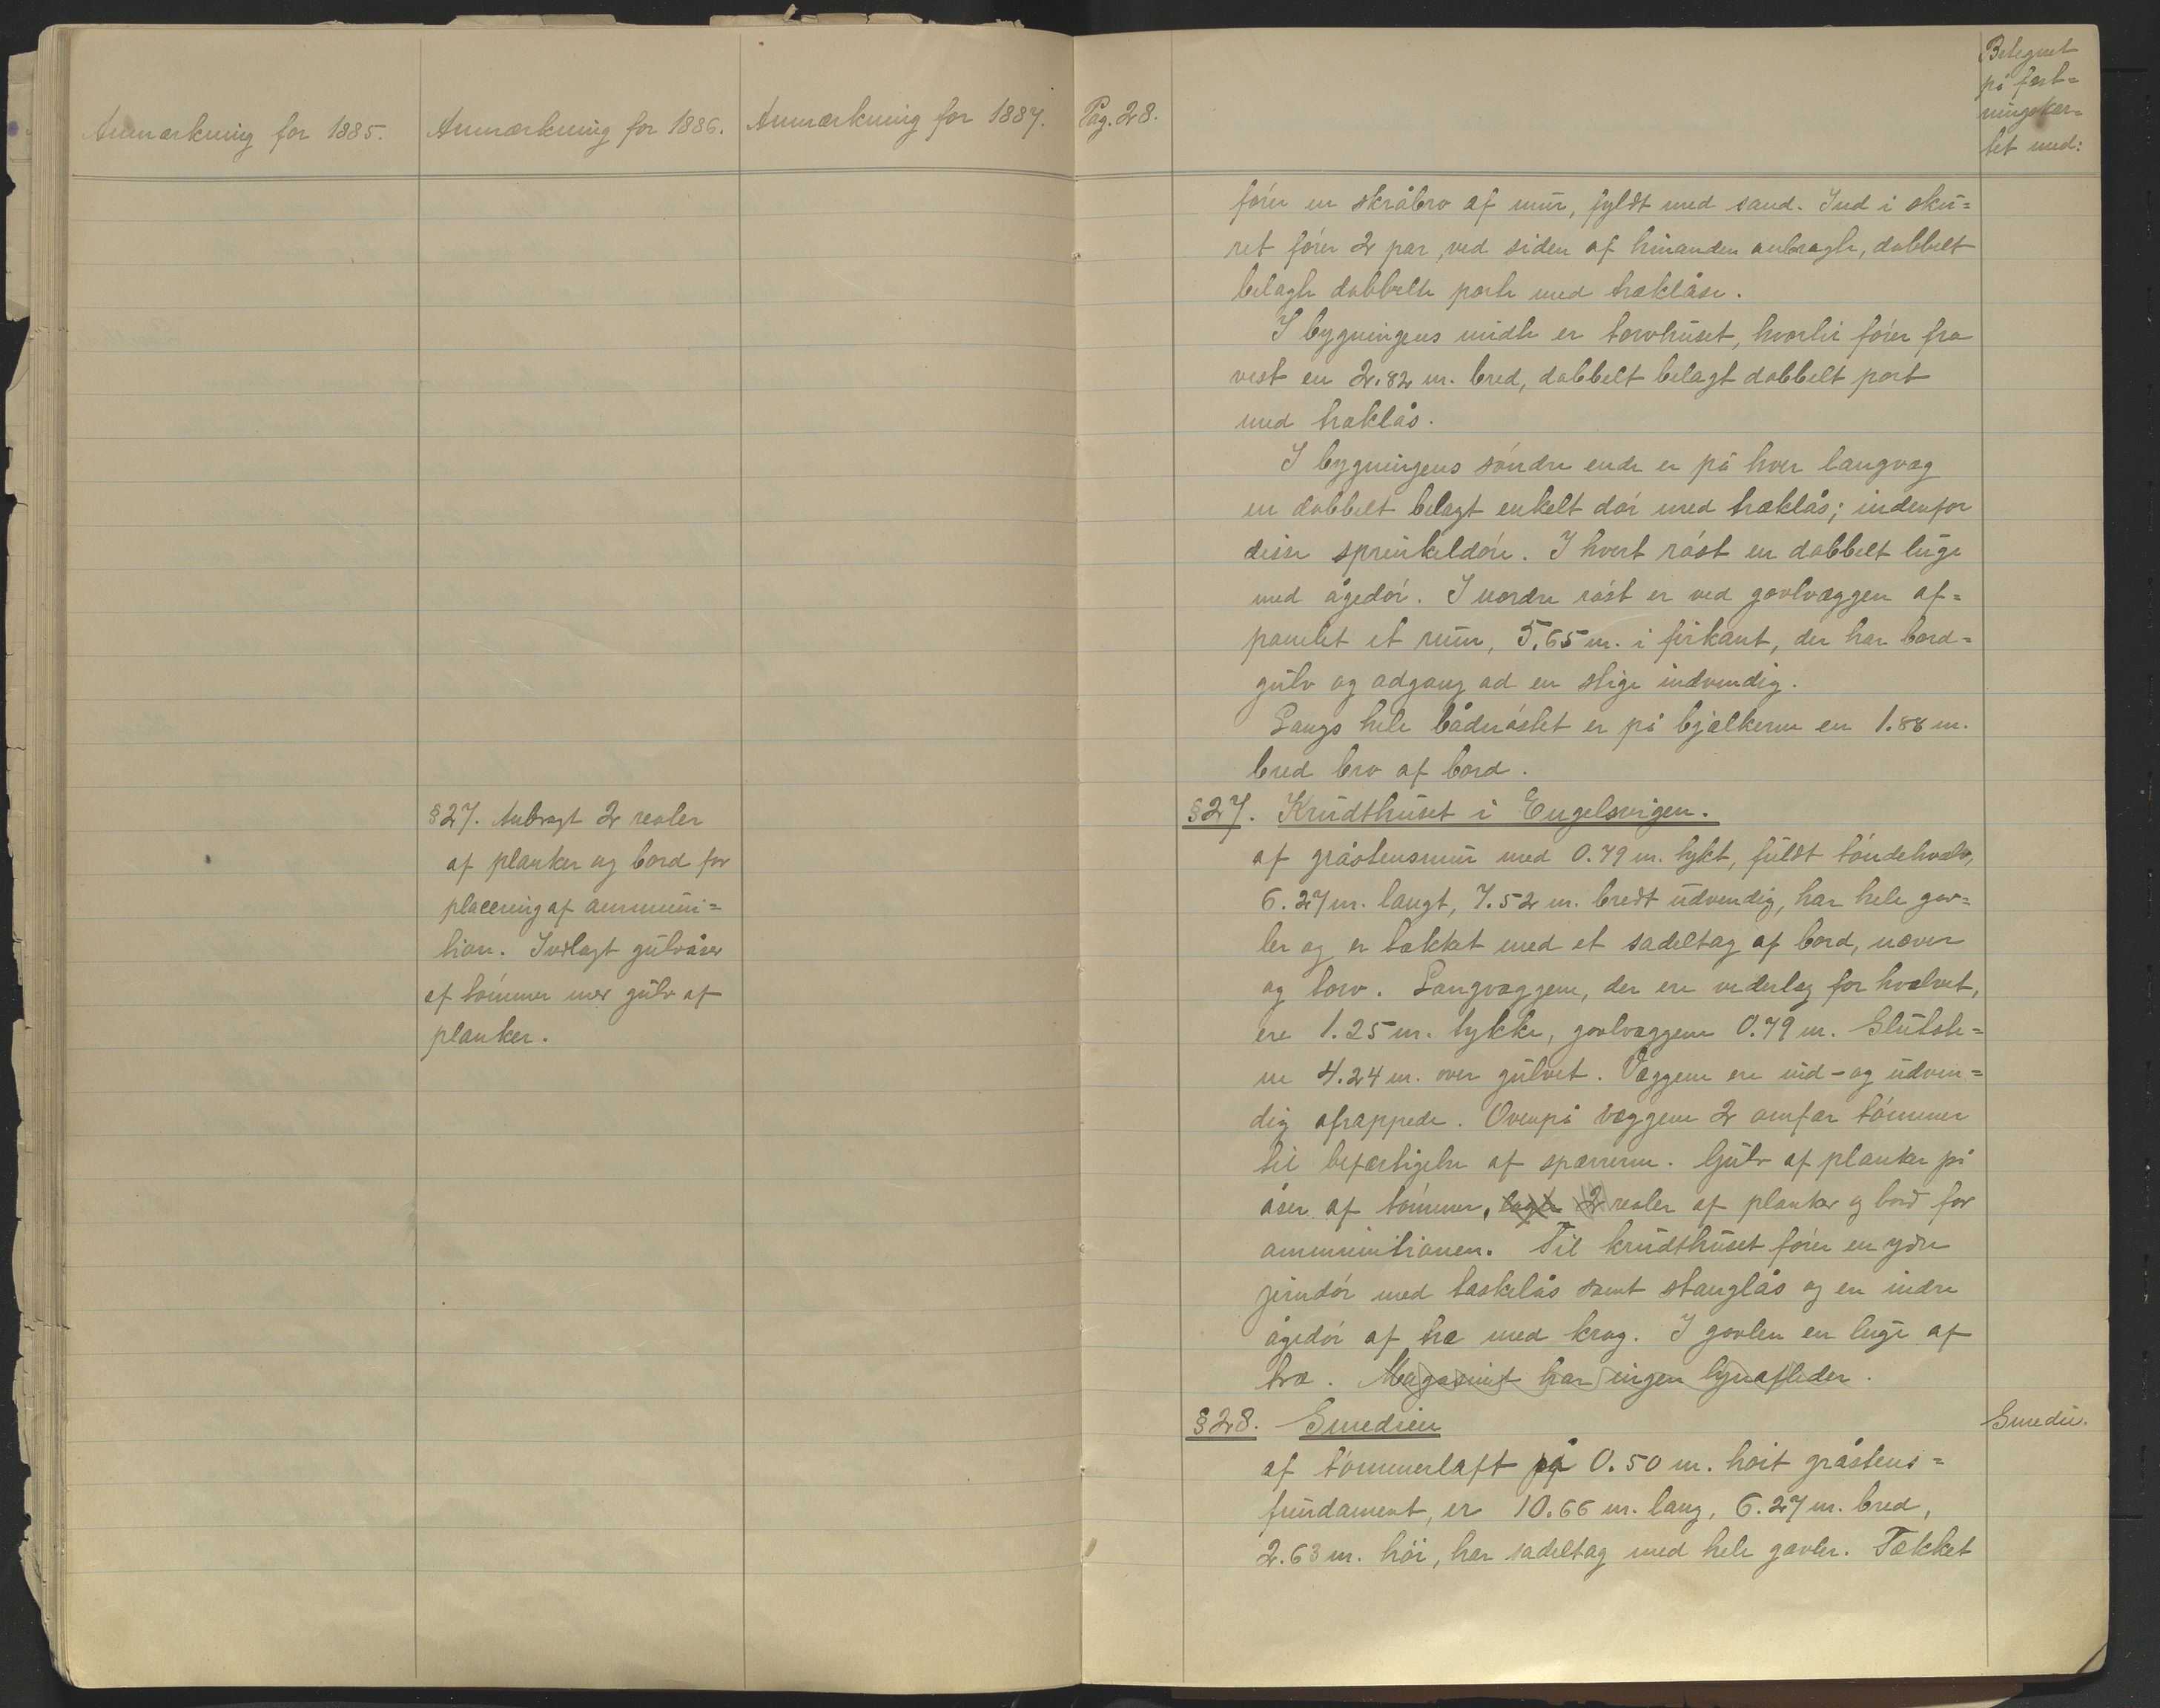 Anmærkning for 1885.
Anmærkning for 1886.
Anmærkning for 1887.
§27. Anbragt 2 reoler
af planker og bord for
placering af ammuni=
tion. Indlagt gulvåser
af tömmer med gulv af
planker.
Pag. 28.
Betegnet
på fæst=
ningskar=
tet med:
förer en skråbro af mur, fyldt med sand. Ind i sku=
ret förer 2 par, ved siden af hinanden anbragte, dobbelt
belagte dobbelte porte med træklåse.
I bygningens midte er torvhuset, hvortil förer fra
vest en 2.82 m. bred, dobbelt belagt dobbelt port
med træklås.
I bygningens söndre ende er på hver langvæg
en dobbelt belagt enkelt dör med træklås; indenfor
disse sprinkeldöre. I hvert röst en dobbelt luge
med ågedör. I nordre röst er ved gavlvæggen af=
panelet et rum, 5.65 m. i firkant, der har bord=
gulv og adgang ad en stige indvendig.
Langs hele bådnöstet er på bjælkerne en 1.88 m.
bred bro af bord.
§27. Krudthuset i Engelsvigen.
af gråstensmur med 0.79 m. tykt, fuldt töndehvælv,
6.27 m. langt, 7.52 m. bredt udvendig, har hele gav=
ler og er tækket med et sadeltag af bord, næver
og torv. Langvæggene, der ere vederlag for hvælvet,
ere 1.25 m. tykke, gavlvæggene 0.79 m. Slutste=
ne 4.24 m. over gulvet. Væggene ere ind- og udven=
dig afrappede. Ovenpå væggene 2 omfar tömmer
til befæstigelse af spærrerne. Gulv af planker på
åser af tömmer, lagte 2 reoler af planker og bord for
ammunitionen. Til krudthuset förer en ydre
jerndör med taskelås samt stanglås og en indre
ågedör af træ med krog. I gavlen en luge af
træ. Magasinet har ingen lynafleder.
§28. Smedien
Smedie.
af tömmerlaft på 0.50 m. höit gråstens=
fundament, er 10.66 m. lang, 6.27 m. bred,
2.63 m. höi, har sadeltag med hele gavler. Tækket